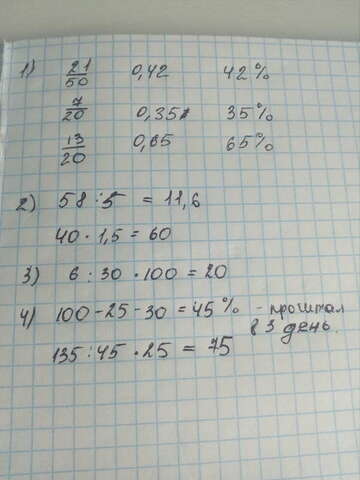 1) 21/50 0,42 42%
7/20 0,35 35%
13/20 0,65 65%
2) 58 : 5 = 11,6
40 · 1,5 = 60
3) 6 : 30 · 100 = 20
4) 100 - 25 - 30 = 45% - прочитал
в 3 день.
135 : 45 · 25 = 75